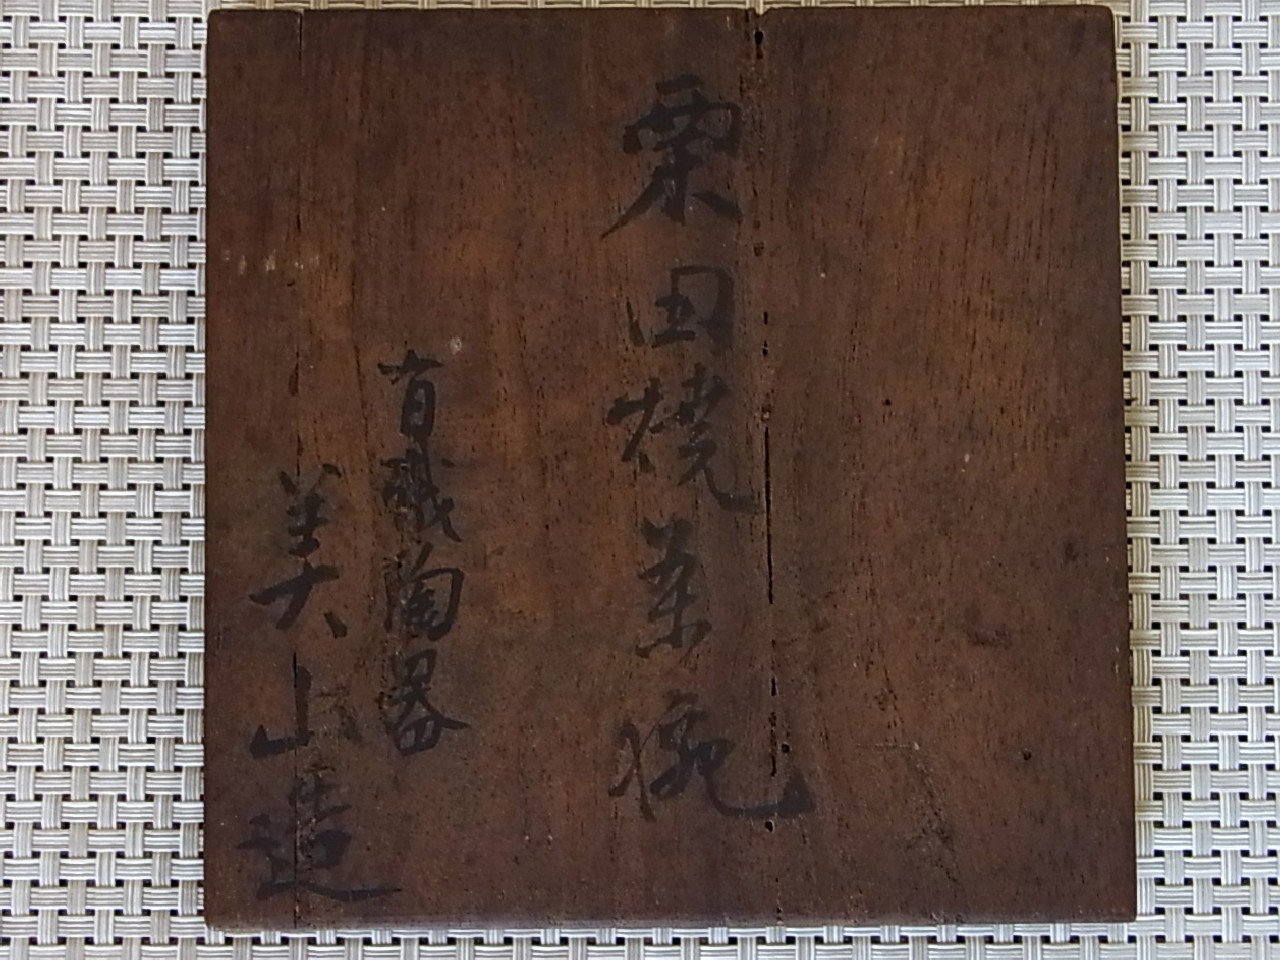 粟田焼茶碗
有職陶器
美山造